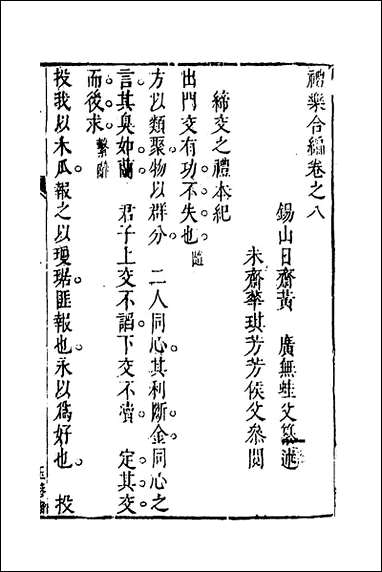 禮樂合編卷之八
錫山日齋黃　廣無蛙父纂述
未齋華琪芳芳侯父叅閱
締交之禮本紀
出門交有功不失也隨
方以類聚物以群分　二人同心其利斷金同心之
言其臭如蘭　君子上交不諂下交不瀆　定其交
而後求繫辭
投我以木瓜報之以瓊琚匪報也永以爲好也　投